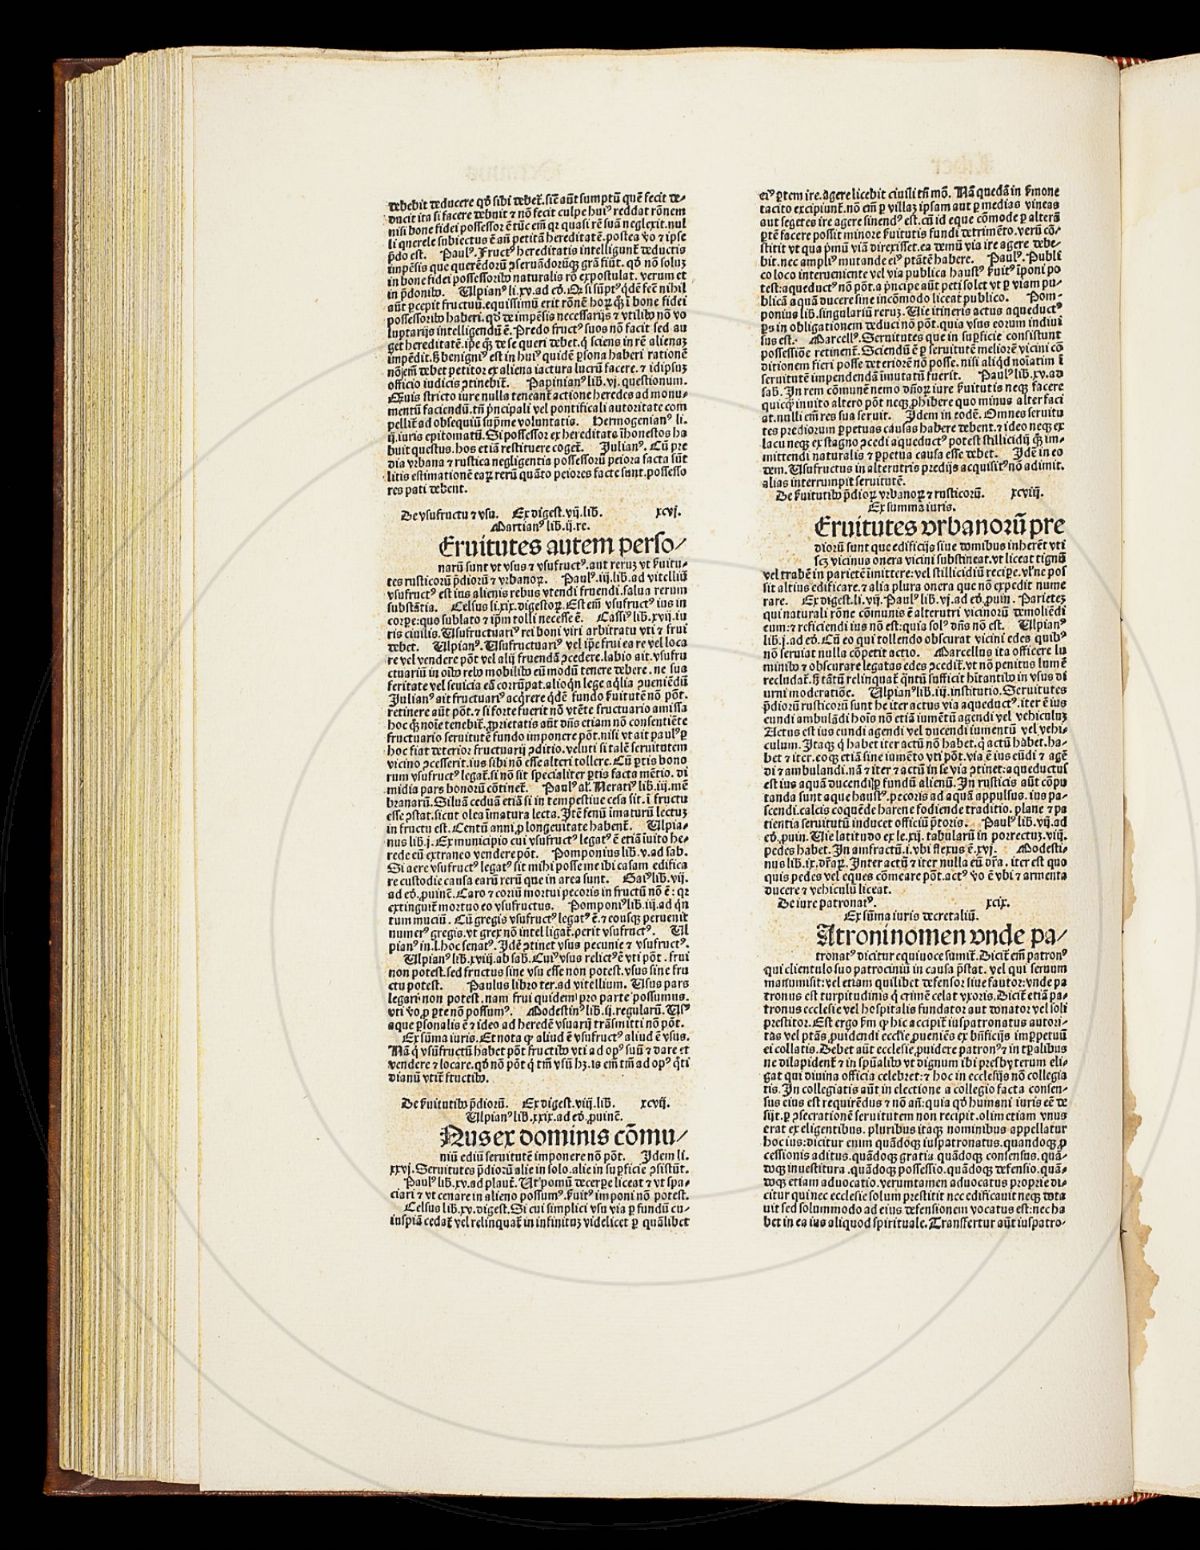 debebit deducere qđ sibi debet᷑. sic̃ aũt sumptũ quẽ fecit de-
ducit ita si facere debuit ⁊ nõ fecit culpe huiꝰ reddat rõnem
nisi bone fidei possessor ẽ tũc em̃ qꝛ quasi rẽ suã neglexit. nul
li querele subiectus ẽ añ petitã hereditatẽ. postea ṽo ⁊ ipse
p̃do est. Paulꝰ. Fructꝰ hereditatis intelligunt᷑ deductis
impẽsis que querẽdorũ ꝯseruãdorũqꝫ grã fiũt. qđ nõ soluꝫ
in bone fidei possessorib᷒ naturalis rõ expostulat. verum et
in p̃donib᷒. Ulpianꝰ li. xv. ad eđ. Qꝛ si sũptꝰ q̃dẽ fec̃ nihil
aũt ꝑcepit fructuũ. equissimũ erit rõnẽ hoꝝ qꝫ ĩ bone fidei
possessorib᷒ haberi. qđ de impẽsis necessarijs ⁊ vtilib᷒ nõ vo
luptarijs intelligendũ ẽ. Predo fructꝰ suos nõ facit sed au
get hereditatẽ. ip̃e qꝫ de se queri debet. q̃ sciens in rẽ alienaꝫ
impẽdit. ß benigniꝰ est in huiꝰ quidẽ ꝑsona haberi rationẽ
nõ em̃ debet petitor ex aliena iactura lucrũ facere. ⁊ idipsuꝫ
officio iudicis ꝯtinebit᷑. Papinianꝰ lib. vj. questionum.
Quis stricto iure nulla teneant᷑ actione heredes ad monu-
mentũ faciendũ. tñ pñcipali vel pontificali autoritate com
pellit᷑ ad obsequiũ sup̃me voluntatis. Hermogenianꝰ li.
ij. iuris epitomatũ. Si possessor ex hereditate ĩhonestos ha
buit questus. hos etiã restituere coget᷑. Julianꝰ. Cũ pre
dia vrbana ⁊ rustica negligentia possessorũ peiora facta sũt
litis estimatione eaꝝ rerũ quãto peiores facte sunt. possesso
res pati debent.
De vsufructu ⁊ vsu. Ex digest. vij. lib. xcvj.
Martianꝰ lib. ij. re.
Eruitutes autem perso⸗
narũ sunt vt vsus ⁊ vsufructꝰ. aut reruꝫ vt ẜuitu-
tes rusticorũ p̃diorũ ⁊ vrbanoꝝ. Paulꝰ. iij. lib. ad vitelliũ
vsufructꝰ est ius alienis rebus vtendi fruendi. salua rerum
substãtia. Celsus li. xix. digestoꝝ. Est em̃ vsufructꝰ ius in
corꝑe: quo sublato ⁊ ip̃m tolli necesse ẽ. Cassiꝰ lib. xvij. iu
ris ciuilis. Usufructuariꝰ rei boni viri arbitratu vti ⁊ frui
debet. Ulpianꝰ. Usufructuariꝰ vel ip̃e frui ea re vel loca
re vel vendere põt vel alij fruendã ꝯcedere. labio ait. vsufru
ctuariũ in oĩb᷒ reb᷒ mobilib᷒ eũ modũ tenere debere. ne sua
feritate vel seuicia eã corrũpat. alioq̃n lege aq̃lia ꝯueniẽdũ
Julianꝰ ait fructuariꝰ acq̃rere q̃dẽ fundo ẜuitutẽ nõ põt.
retinere aũt põt. ⁊ si forte fuerit nõ vtẽte fructuario amissa
hoc qꝫ noĩe tenebit᷑. ꝓprietatis aũt dñs etiam nõ consentiẽte
fructuario seruitutẽ fundo imponere põt. nisi vt ait paulꝰ ꝑ
hoc fiat deterior fructuarij ꝯditio. veluti si talẽ seruitutem
vicino ꝯcesserit. ius sibi nõ esse alteri tollere. Cũ ꝑtis bono
rum vsufructꝰ legat᷑. si nõ sit specialiter ꝑtis facta mẽtio. di
midia pars bonorũ cõtinet᷑. Paulꝰ al᷑. Neratiꝰ lib. iij. mẽ
branarũ. Siluã ceduã etiã si in tempestiue cesa sit. ĩ fructu
esse ꝯstat. sicut olea ĩmatura lecta. Itẽ fenũ ĩmaturũ lectuꝫ
in fructu est. Centũ anni ꝓ longeuitate habent᷑. Ulpia⸗
nus lib. j. Ex municipio cui vsufructꝰ legatꝰ ẽ etiã iuito he⸗
rede eũ extraneo vendere põt. Pomponius lib. v. ad sab.
Si aere vsufructꝰ legatꝰ sit mihi posse me ibi casam edifica
re custodie causa earũ rerũ que in area sunt. Gaiꝰ lib. vij.
ad eđ. ꝓuinẽ. Caro ⁊ coriũ mortui pecoris in fructũ nõ ẽ: qꝛ
extinguit᷑ mortuo eo vsufructus. Pomponiꝰ lib. iij. ad q̃n
tum muciũ. Cũ gregis vsufructꝰ legatꝰ ẽ. ⁊ eousqꝫ peruenit
numerꝰ gregis. vt grex nõ intelligat᷑. perit vsufructꝰ. Ul
pianꝰ in. l. hoc senatꝰ. Idẽ ꝯtinet vsus pecunie ⁊ vsufructꝰ.
Ulpianꝰ lib. xviij. ab sab. Cuiꝰ vsus relictꝰ ẽ vti põt. frui
non potest. sed fructus sine vsu esse non potest. vsus sine fru
ctu potest. Paulus libro ter. ad vitellium. Usus pars
legari non potest. nam frui quidem pro parte possumus.
vti ṽo ꝓ ꝑte nõ possumꝰ. Modestinꝰ lib. ij. regularũ. Usꝰ
aque ꝑsonalis ẽ ⁊ ideo ad heredẽ vsuarij trãsmitti nõ põt.
Ex sũma iuris. Et nota ꝙ aliud ẽ vsufructꝰ aliud ẽ vsus.
Nã q̃ vsũfructũ habet põt fructib᷒ vti ad opꝰ suũ ⁊ dare et
vendere ⁊ locare. qđ nõ põt q̃ tm̃ vsũ hꝫ. is em̃ tm̃ ad opꝰ q̃ti
dianũ vtit᷑ fructib᷒.
De ẜuitutib᷒ p̃diorũ. Ex digest. viij. lib. xcvij.
Ulpianꝰ lib. xxix. ad eđ. ꝓuinẽ.
Nus ex dominis cõmu⸗
niũ ediũ seruitutẽ imponere nõ põt. Idem li.
xxvj. Seruitutes p̃diorũ alie in solo. alie in suꝑficie ꝯsistũt.
Paulꝰ lib. xv. ad plaut᷑. Ut pomũ decerꝑe liceat ⁊ vt spa⸗
ciari ⁊ vt cenare in alieno possumꝰ. ẜuitꝰ imponi nõ potest.
Celsus lib. xv. digest. Si cui simplici vsu via ꝑ fundũ cu-
iuspiã cedat᷑ vel relinquat᷑ in infinituꝫ videlicet ꝑ quãlibet
eiꝰ ꝑtem ire. agere licebit ciuili tñ mõ. Nã quedã in ẜmone
tacito excipiunt᷑. nõ em̃ ꝑ villaꝫ ipsam aut ꝑ medias vineas
aut segetes ire agere sinendꝰ est. cũ id eque cõmode ꝑ alterã
ꝑtẽ facere possit minore ẜuitutis fundi detrimẽto. verũ cõ⸗
stitit vt qua pmũ viã direxisset. ea demũ via ire agere debe⸗
bit. nec ampliꝰ mutande eiꝰ ptãtẽ habere. Paulꝰ. Publi
co loco interueniente vel via publica haustꝰ ẜuitꝰ ĩponi po
test: aqueductꝰ nõ põt. a pñcipe aũt peti solet vt ꝑ viam pu⸗
blicã aquã ducere sine incõmodo liceat publico. Pom⸗
ponius lib. singulariũ reruꝫ. Uie itineris actus aqueductꝰ
ꝑs in obligationem deduci nõ põt. quia vsus eorum indiui
sus est. Marcellꝰ. Seruitutes que in suꝑficie consistunt
possessiõe retinent᷑. Sciendũ ẽ ꝑ seruitutẽ meliorẽ vicini cõ
ditionem fieri posse deteriorẽ nõ posse. nisi aliq̃d noĩatim ĩ
seruitutẽ impendendã imutatũ fuerit. Paulꝰ lib. xv. ad
sab. In rem cõmunẽ nemo dñoꝝ iure ẜuitutis neqꝫ facere
quicq̃ inuito altero põt neqꝫ ꝓhibere quo minus alter faci
at. nulli em̃ res sua seruit. Idem in eodẽ. Omnes seruitu
tes prediorum ꝑpetuas causas habere debent. ⁊ ideo neqꝫ ex
lacu neqꝫ ex stagno ꝯcedi aqueductꝰ potest stillicidij qꝫ im⸗
mittendi naturalis ⁊ ꝑpetua causa esse debet. Idẽ in eo
dem. Usufructus in alterutris predijs acquisitꝰ nõ adimit.
alias interrumpit seruitutẽ.
De ẜuitutib᷒ p̃dioꝝ vrbanoꝝ ⁊ rusticorũ. xcviij.
Ex summa iuris.
Eruitutes vrbanorũ pre
diorũ sunt que edificijs siue domibus inherẽt vti
scꝫ vicinus onera vicini substineat. vt liceat tignũ
vel trabẽ in parietẽ ĩmittere: vel stillicidiũ reciꝑe. vl᷑ne pos
sit altius edificare. ⁊ alia plura onera que nõ expedit nume
rare. Ex digest. li. vij. Paulꝰ lib. vj. ad eđ. ꝓuin. Parietes
qui naturali rõne cõmunis ẽ alterutri vicinorũ demoliẽdi
eum: ⁊ reficiendi ius nõ est: quia solꝰ dñs nõ est. Ulpianꝰ
lib. j. ad eđ. Cũ eo qui tollendo obscurat vicini edes quibꝰ
nõ seruiat nulla cõpetit actio. Marcellus ita officere lu
minib᷒ ⁊ obscurare legatas edes ꝯcedit᷑. vt nõ penitus lumẽ
recludat᷑. ß tãtũ relinquat᷑ q̃ntũ sufficit hĩtantib᷒ in vsus di
urni moderatiõe. Ulpianꝰ lib. iij. institutio. Seruitutes
p̃diorũ rusticorũ sunt he iter actus via aqueductꝰ. iter ẽ ius
eundi ambulãdi hoĩs nõ etiã iumẽtũ agendi vel vehiculuꝫ
Actus est ius eundi agendi vel ducendi iumentũ vel vehi⸗
culum. Itaqꝫ q̃ habet iter actũ nõ habet. q̃ actũ habet. ha-
bet ⁊ iter. eoqꝫ etiã sine iumẽto vti põt. via ẽ ius eũdi ⁊ agẽ
di ⁊ ambulandi. nã ⁊ iter ⁊ actũ in se via ꝯtinet: aqueductus
est ius aquã ducendi ꝑ fundũ alienũ. In rusticis aũt cõpu
tanda sunt aque haustꝰ. pecoris ad aquã appulsus. ius pa⸗
scendi. calcis coquẽde harene fodiende traditio. plane ⁊ pa
tientia seruitutũ inducet officiũ p̃toris. Paulꝰ lib. vij. ad
eđ. ꝓuin. Uie latitudo ex le. xij. tabularũ in porrectuꝫ. viij.
pedes habet. In amfractũ. i. vbi flexus ẽ. xvj. Modesti⸗
nus lib. ix. dr̃aꝝ. Inter actũ ⁊ iter nulla eũ dr̃a. iter est quo
quis pedes vel eques cõmeare põt. actꝰ ṽo ẽ vbi ⁊ armenta
ducere ⁊ vehiculũ liceat.
De iure patronatꝰ. xcix.
Ex sũma iuris decretaliũ.
Atroninomen vnde pa⸗
tronatꝰ dicitur equiuoce sumit᷑. Dicit᷑ em̃ patronꝰ
qui clientulo suo patrociniũ in causa p̃stat. vel qui seruum
manumisit: vel etiam quilibet defensor siue fautor: vnde pa
tronus est turpitudinis q̃ crimẽ celat vxoris. Dicit᷑ etiã pa⸗
tronus ecclesie vel hospitalis fundator aut donator vel soli
prestitor. Est ergo ẜm ꝙ hic accipit᷑ iuspatronatus autori⸗
tas vel ptãs ꝓuidendi eccľsie ꝓueniẽs ex bñficijs imꝑpetuũ
ei collatis. Debet aũt ecclesie ꝓuidere patronꝰ ⁊ in tꝑalibus
ne dilapident᷑ ⁊ in spũalib᷒ vt dignum ibi presbyterum eli⸗
gat qui diuina officia celebret: ⁊ hoc in ecclesijs nõ collegia
tis. In collegiatis aũt in electione a collegio facta consen⸗
sus eius est requirẽdus ⁊ nõ añ: quia qđ humani iuris eẽ de
sijt. ꝑ ꝯsecrationẽ seruitutem non recipit. olim etiam vnus
erat ex eligentibus. pluribus itaqꝫ nominibus appellatur
hoc ius: dicitur enim quãdoqꝫ iuspatronatus. quandoqꝫ ꝓ
cessionis aditus. quãdoqꝫ gratia quãdoqꝫ consensus. quã⸗
doqꝫ inuestitura. quãdoqꝫ possessio. quãdoqꝫ defensio. quã⸗
doqꝫ etiam aduocatio. verumtamen aduocatus proprie di⸗
citur qui nec ecclesie solum prestitit nec edificauit neqꝫ dota
uit sed solummodo ad eius defensionem vocatus est: nec ha
bet in ea ius aliquod spirituale. Transfertur aũt iuspatro-